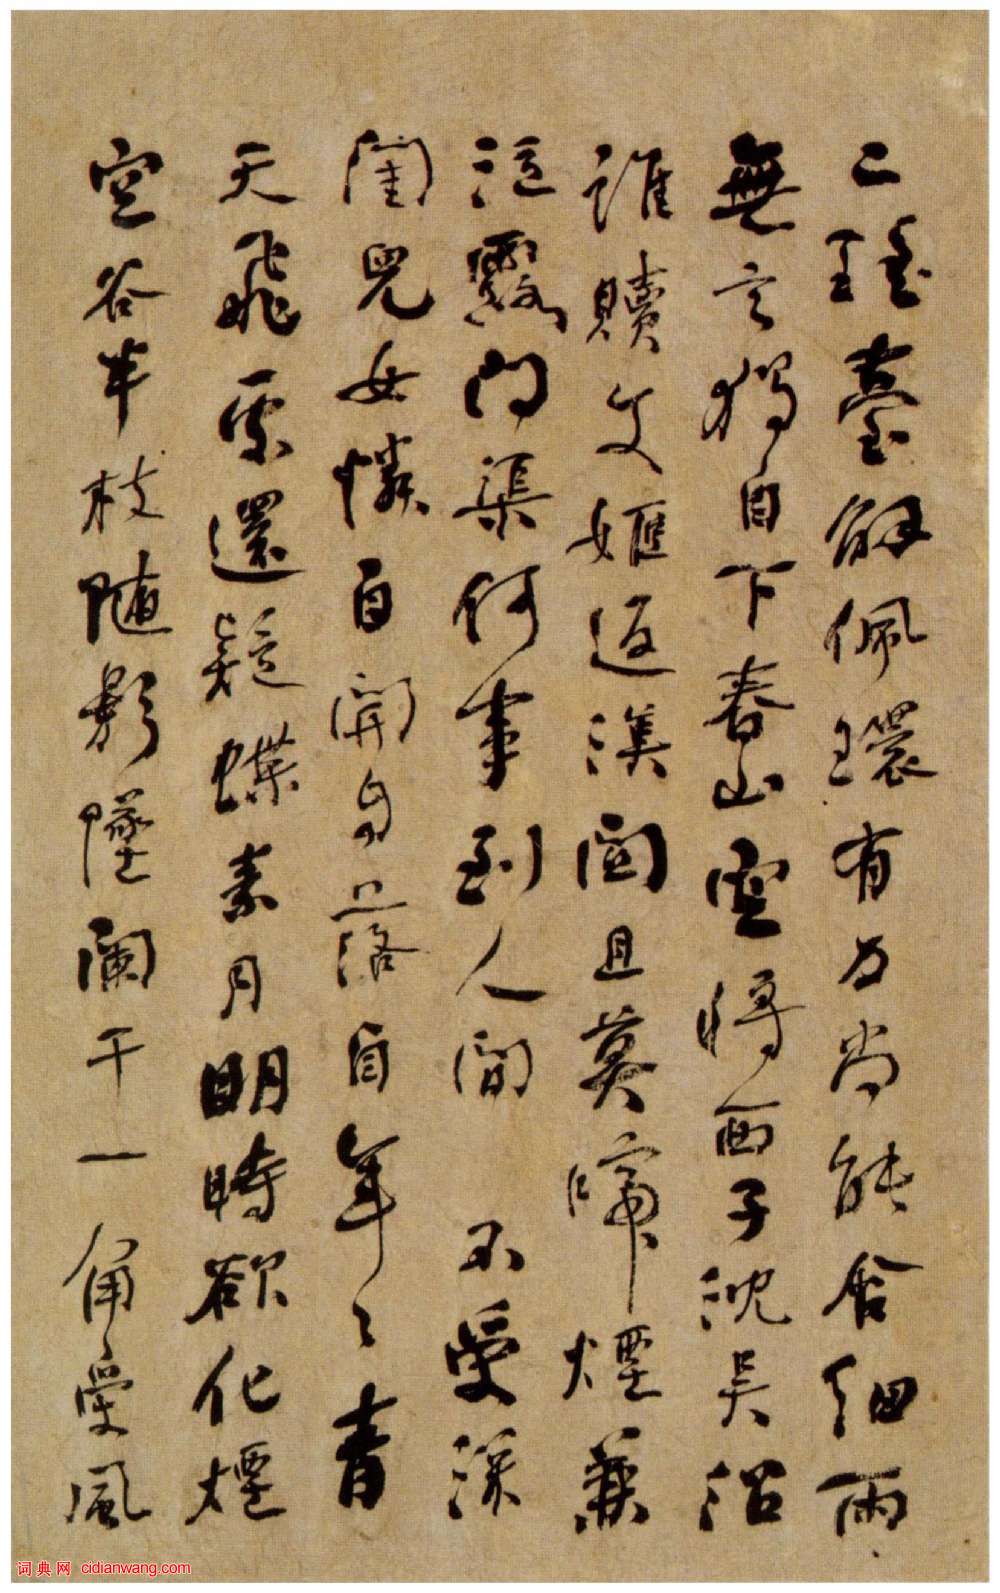 瑤臺解佩環有力尚能含細雨
無言獨自下春山空將西子沈吳沼
誰贖文姬返漢關且莫啼煙兼
泣露問渠何事到人間 不受深
閨兒女憐自開自落自年々青
天飛處還疑蝶素月明時欲化煙
空谷半枝隨影墜闌干一角受風
词典网 cidianwang.com